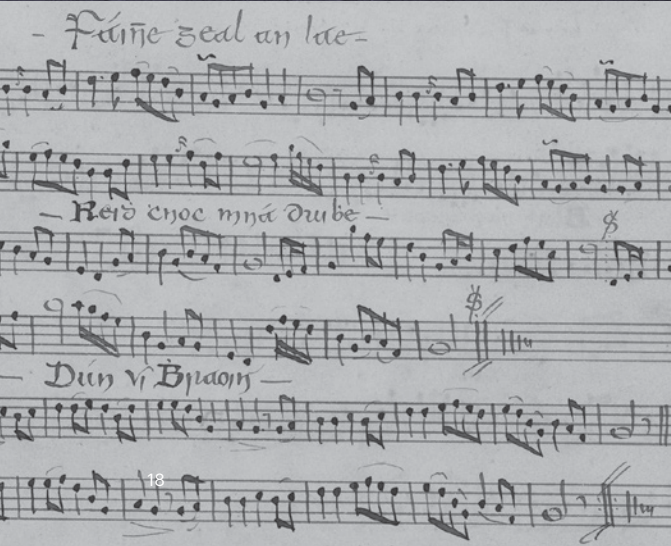 - Fáinne geal an lae -
- Reidh chnoc mná dubhe -
- Dún uí Bhraoin -
18